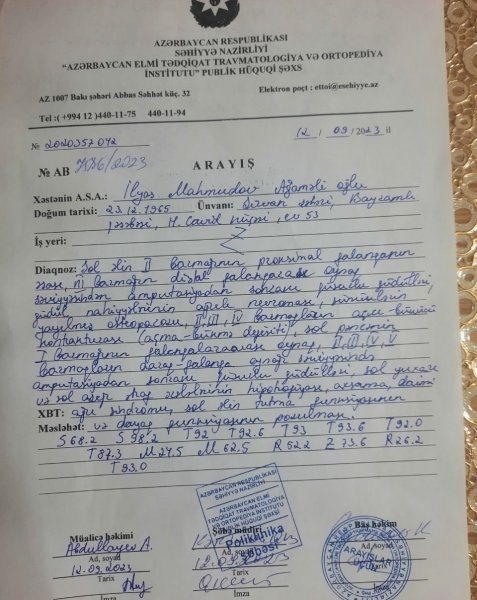 AZƏRBAYCAN RESPUBLİKASI
SƏHİYYƏ NAZİRLİYİ
“AZƏRBAYCAN ELMİ TƏDQİQAT TRAVMATOLOGİYA VƏ ORTOPEDİYA
İNSTİTUTU” PUBLİK HÜQUQİ ŞƏXS
AZ 1007 Bakı şəhəri Abbas Səhhət küç. 32
Elektron poçt : ettoi@esehiyye.az
Tel :( +994 12 )440-11-75 440-11-94
№ 2020357042
12 / 09 /2023 il
№ AB /2023
ARAYIŞ
Xəstənin A.S.A.: İlyas Mahmudov Ağaməli oğlu
Doğum tarixi: 23.12.1965 Ünvanı: Şirvan şəhəri, Bayramlı
qəsəbəsi, H. Cavid küçəsi, ev 53
İş yeri:
Diaqnoz: Sol əlin II barmağının proksimal falanqanın
əsası, III barmağın distal falanqalararası oynaq
səviyyəsindən amputasiyadan sonrakı qüsurlu güdülləri
güdül nahiyələrinin ağrılı nevroması, sümüklərin
yayılmış osteoporozu, II, III, IV barmaqların açıcı-bükücü
kontrakturası (açma-bükmə defisiti), sol pəncənin
I barmağının falanqalararası oynaq, II, III, IV, V
barmaqların daraq-falanqa oynağı səviyyəsində
amputasiyadan sonrakı qüsurlu güdülləri, sol yuxarı
və sol aşağı ətraf əzələlərinin hipotrofiyası, axsama, daimi
XBT: ağrı sindromu, sol əlin tutma funksiyasının
Məsləhət: və dayaq funksiyasının pozulması.
S68.2 S98.2 T92 T92.6 T93 T93.6 T92.0
T87.3 M24.5 M62.5 R52.2 Z73.6 R26.2
T93.0
AZƏRBAYCAN RESPUBLİKASI
SƏHİYYƏ NAZİRLİYİ
AZƏRBAYCAN ELMİ
TƏDQİQAT TRAVMATOLOGİYA
VƏ ORTOPEDİYA İNSTİTUTU
PUBLİK HÜQUQİ ŞƏXSİ
Poliklinika
şöbəsi
Müalicə həkimi
Şöbə müdiri
Baş həkim
Abdullayev A.
Ad, soyad
Ad, soyad
12.09.2023
12.09.2023
Tarix
Tarix
İmza
İmza
İmza
ARAYIŞLAR
ÜÇÜN